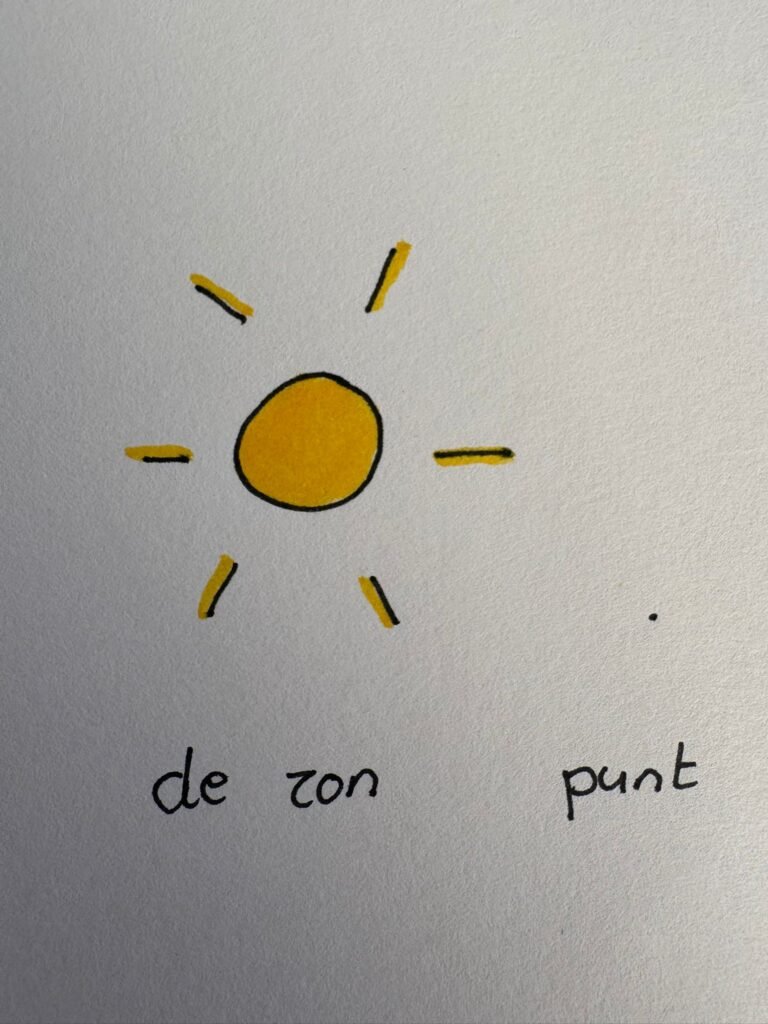 de zon punt